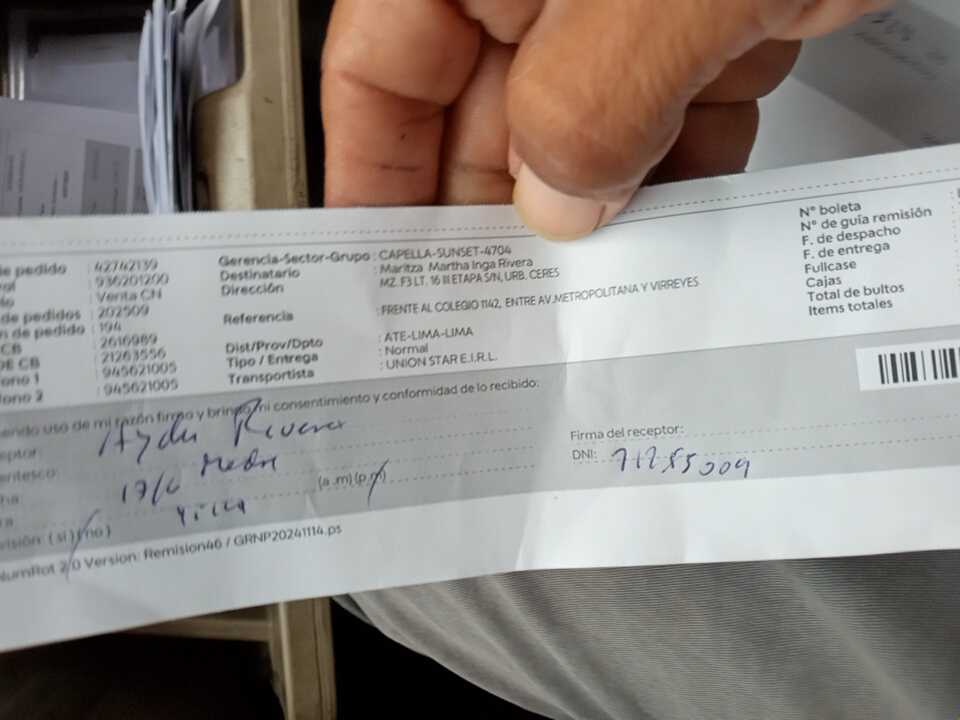 de pedido : 42742139
: 936201200
: Venta CN
de pedidos : 202509
de pedido : 194
CB : 2616989
DE CB : 21263556
: 945621005
2 : 945621005
Gerencia-Sector-Grupo : CAPELLA-SUNSET-4704
Destinatario : Maritza Martha Inga Rivera
Dirección MZ. F3 LT. 16 III ETAPA S/N, URB. CERES
Referencia : FRENTE AL COLEGIO 1142, ENTRE AV.METROPOLITANA Y VIRREYES
Dist/Prov/Dpto : ATE-LIMA-LIMA
Tipo / Entrega : Normal
Transportista : UNION STAR E.I.R.L.
N° boleta
N° de guía remisión
F. de despacho
F. de entrega
Fullcase
Cajas
Total de bultos
Items totales
endo uso de mi razón firmo y brindo mi consentimiento y conformidad de lo recibido:
eptor: Rivera
entesco: Madre
ha:
(a .m) (p.m)
visión: ( si ) ( no )
NumRot 2/0 Version: Remision46 / GRNP20241114.ps
Firma del receptor:
DNI: